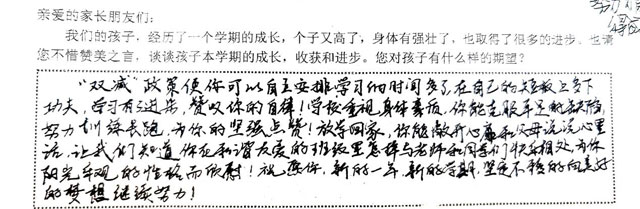 亲爱的家长朋友们:
我们的孩子，经历了一个学期的成长，个子又高了，身体有强壮了，也取得了很多的进步。也请
您不惜赞美之言，谈谈孩子本学期的成长，收获和进步。您对孩子有什么样的期望?
“双减”政策使你可以自主安排学习的时间多了，在自己的短板上多下
功夫，学习有了进步，赞叹你的自律！学校重视身体素质，你能克服平足的缺陷，
努力训练长跑，为你的坚强点赞！放学回家，你能敞开心扉和父母说说心里
话，让我们知道你在和谐友爱的班级里怎样与老师和同学们快乐相处，为你
阳光乐观的性格而欣慰！祝愿你，新的一年，新的学期，坚定不移的向美好
的梦想继续努力！